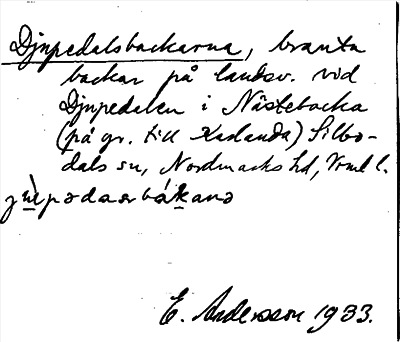 Djupedalsbackarna, branta
backar på landsv. vid
Djupedalen i Nästebacka
(på gr. till Karlanda) Silbo-
dals sn, Nordmarks hd, Vrml l.
E. Andersson 1933.